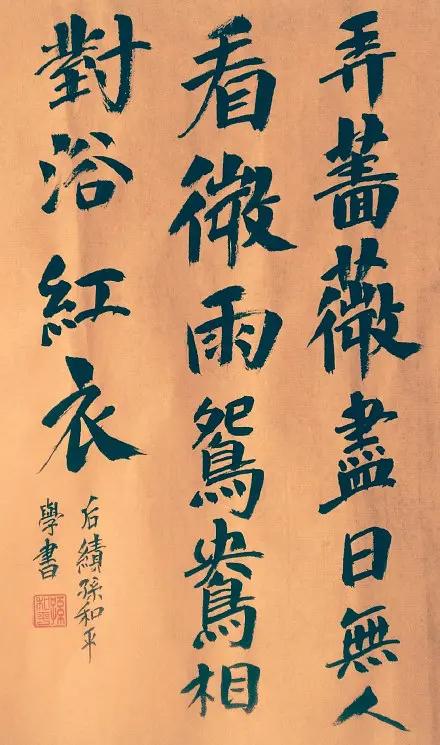 弄薔薇盡日無人
看微雨鴛鴦相
對浴紅衣
后績孫和平
學書